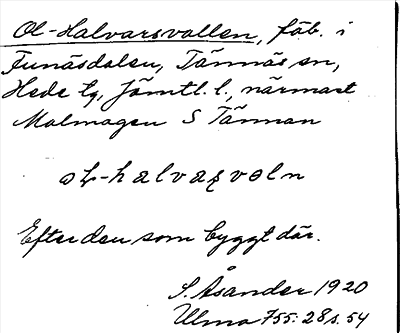 Ol-Halvarsvallen, fäb. i
Funäsdalen, Tännäs sn,
Hede tg, Jämtl. l., närmast
Malmagen S Tännan
Efter den som byggt där.
S. Åsander 1920
Ulma 755:28 s. 54